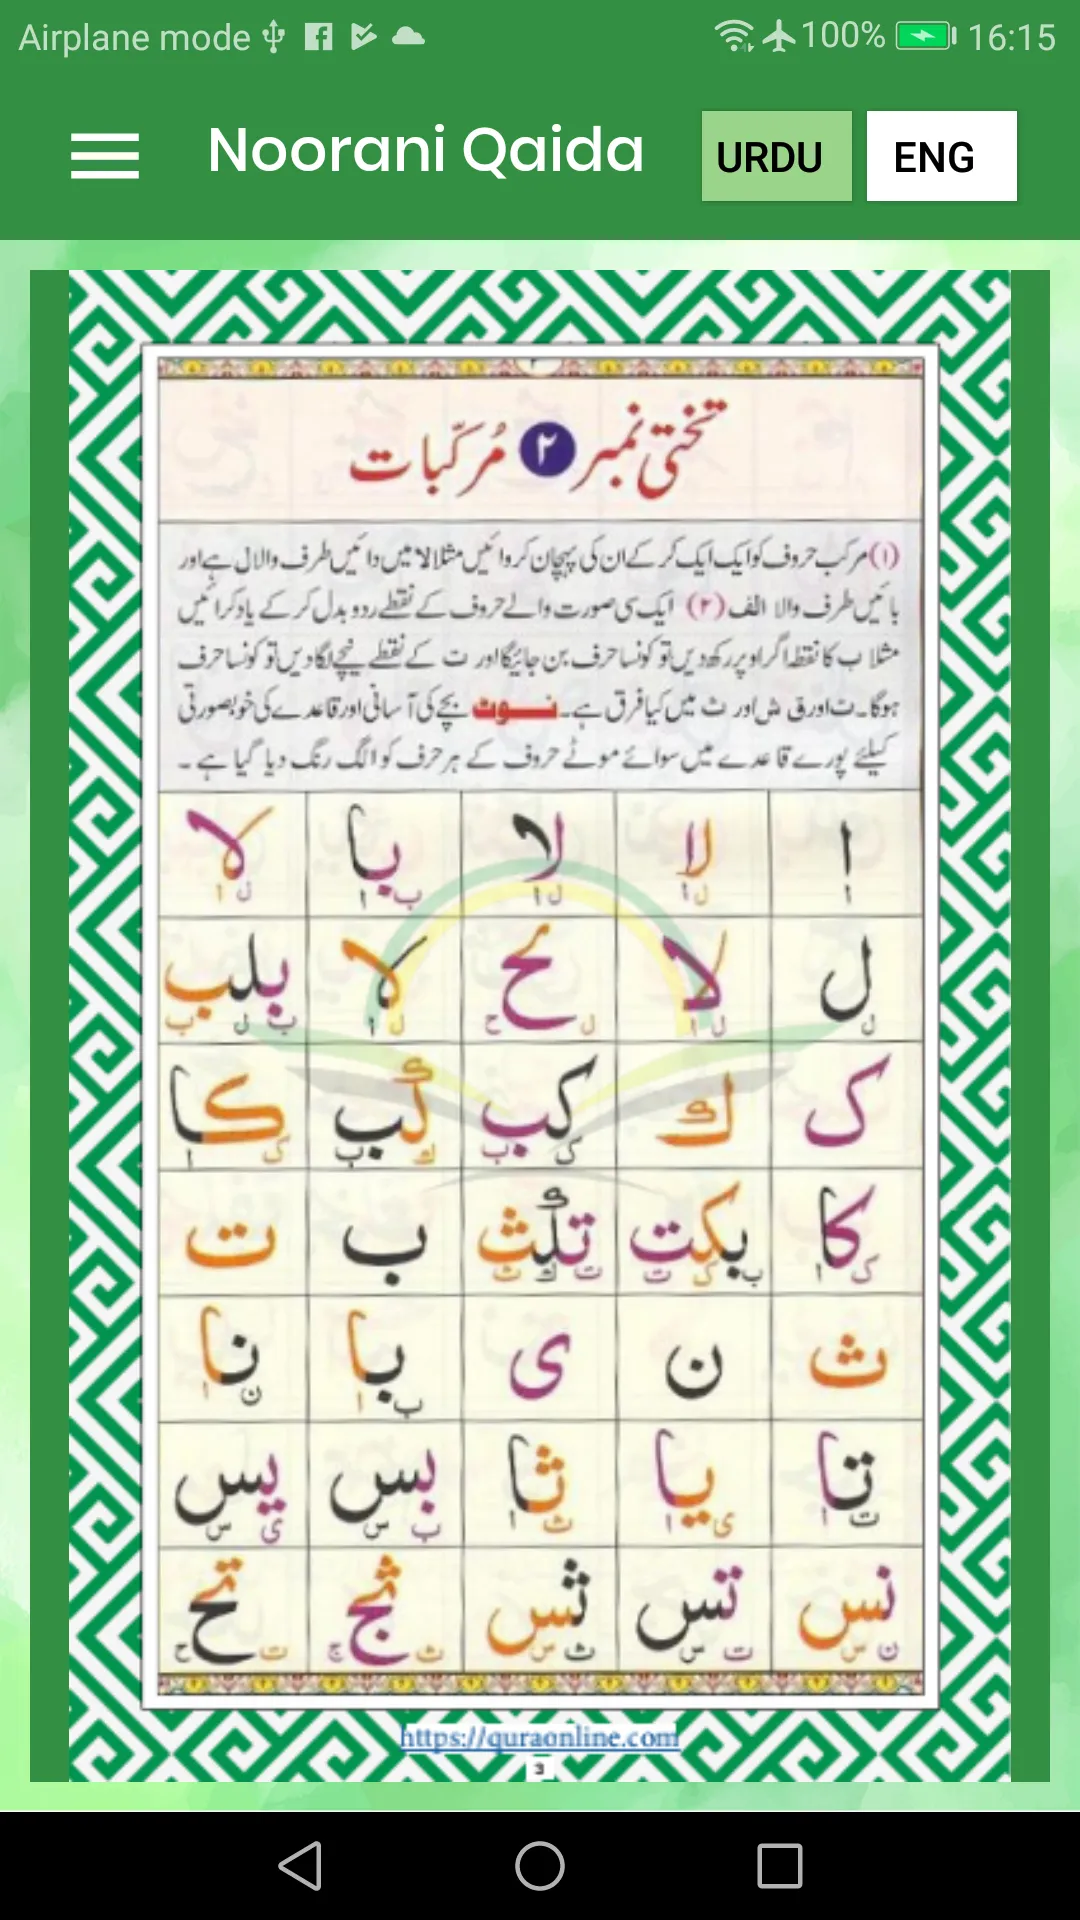 Airplane mode 100% 16:15
Noorani Qaida URDU ENG
تختی نمبر ۲ مُرکّبات
(۱) مرکب حروف کو ایک ایک کر کے ان کی پہچان کروائیں مثلا لا میں دائیں طرف والا ل ہے اور
بائیں طرف والا الف (۲) ایک سی صورت والے حروف کے نقطے ردو بدل کر کے یاد کرائیں
مثلا ب کا نقطہ اگر اوپر رکھ دیں تو کونسا حرف بن جائیگا اور ت کے نقطے نیچے لگا دیں تو کونسا حرف
ہوگا۔ ت اور ق ش اور ث میں کیا فرق ہے۔ نــوٹ بچے کی آسانی اور قاعدے کی خوبصورتی
کیلئے پورے قاعدے میں سوائے موٹے حروف کے ہر حرف کو الگ رنگ دیا گیا ہے ۔
ا لا لا با لا
ا ل ا ل ا ب ا ل ا
ل لا لح لا بلب
ل ل ا ل ح ل ا ب ل ب
ک ك کب كب کا
ک ب ك ب ک ا
کا بکت تكث ب ت
ک ا ب ک ت ت ك ث
ث ن ی با نا
ب ا ن ا
تا یا ثا بس یس
ت ا ی ا ث ا ب س ی س
نس تس ثس ثج تح
ن س ت س ث س ث ج ت ح
https://quraonline.com
3